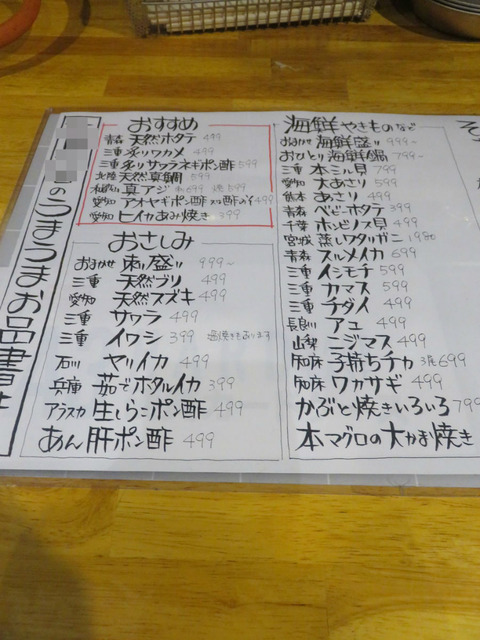 のうまうまお品書き
おすすめ
青森 天然ホタテ 499
三重 炙りワカメ 499
三重 炙りサワラネギポン酢 599
北陸 天然真鯛 599
和歌山 真アジ 刺699 焼599
愛知 アオヤギポン酢 又は酢みそ 499
愛知 ヒイカあみ焼き 399
おさしみ
おまかせ 刺し盛り 999~
三重 天然ブリ 499
愛知 天然スズキ 499
三重 サワラ 499
三重 イワシ 399 塩焼きもあります
石川 ヤリイカ 499
兵庫 茹でホタルイカ 399
アラスカ 生しらこポン酢 499
あん肝ポン酢 499
海鮮やきものなど
おまかせ 海鮮盛り 999~
おひとり 海鮮鍋 799~
三重 本ミル貝 799
愛知 大あさり 599
熊本 あさり 499
青森 ベビーホタテ 399
千葉 ホンビノス貝 499
宮城 蒸しワタリガニ 1980
青森 スルメイカ 699
三重 イシモチ 599
三重 カマス 599
三重 チダイ 499
長良川 アユ 499
山梨 ニジマス 499
知床 子持ちチカ 3尾699
知床 ワカサギ 499
かぶと焼きいろいろ 799
本マグロの大かま焼き
そ